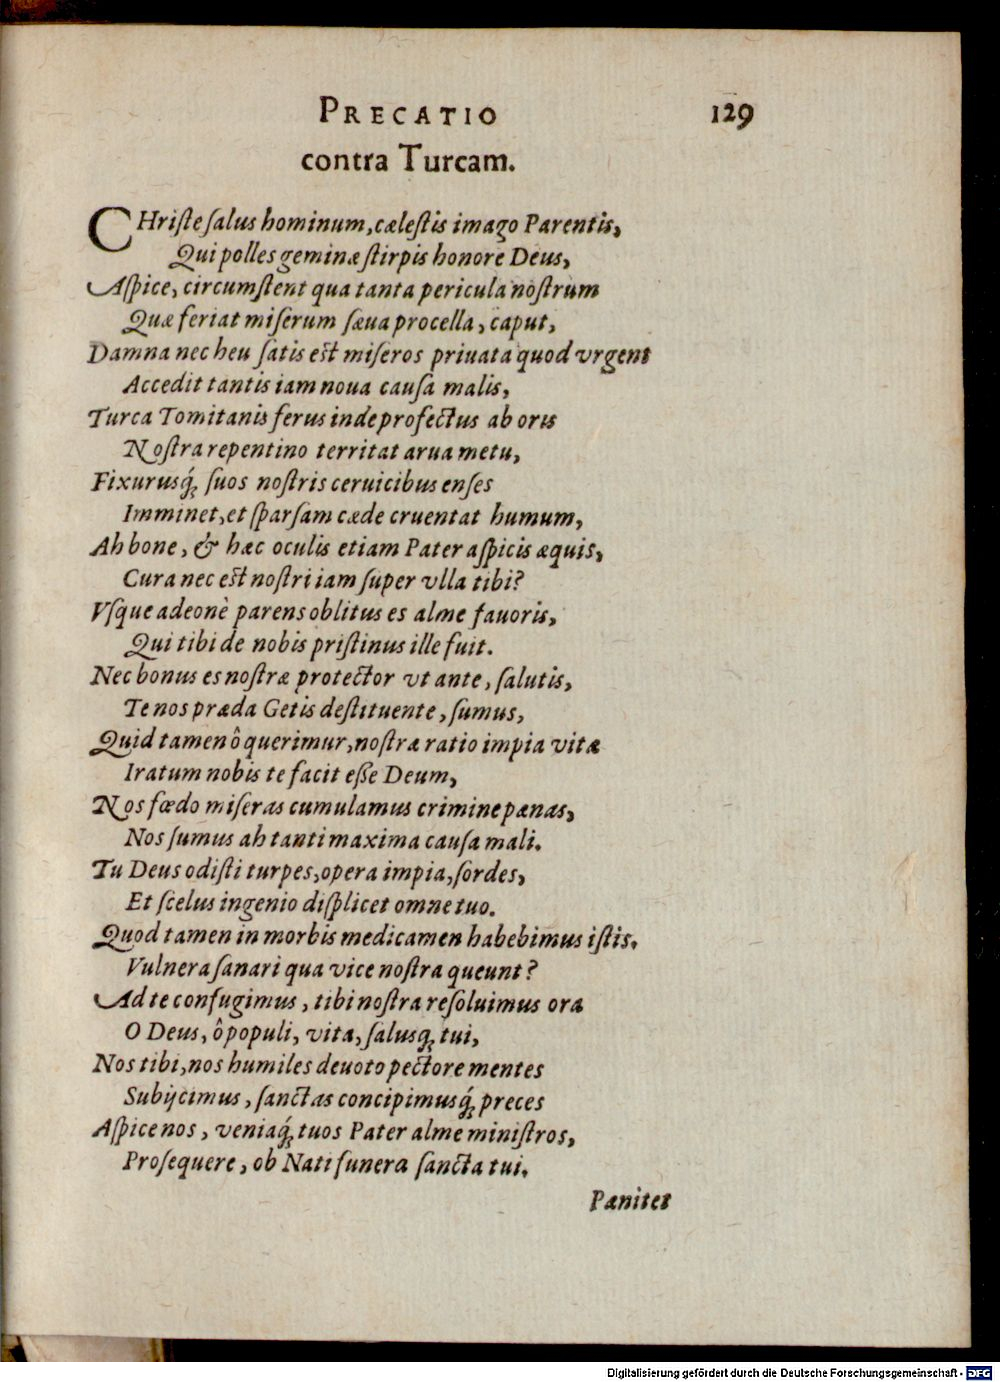 PRECATIO 129
contra Turcam.
CHriste salus hominum, cælestis imago Parentis,
Qui polles geminæ stirpis honore Deus,
Aspice, circumstent qua tanta pericula nostrum
Quæ feriat miserum sæua procella, caput,
Damna nec heu satis est miseros priuata quod vrgent
Accedit tantis iam noua causa malis,
Turca Tomitanis ferus inde profectus ab oris
Nostra repentino territat arua metu,
Fixurusq́; suos nostris ceruicibus enses
Imminet, et sparsam cæde cruentat humum,
Ah bone, & hæc oculis etiam Pater aspicis æquis,
Cura nec est nostri iam super vlla tibi?
Vsque adeonè parens oblitus es alme fauoris,
Qui tibi de nobis pristinus ille fuit.
Nec bonus es nostræ protector vt ante, salutis,
Te nos præda Getis destituente, sumus,
Quid tamen ô querimur, nostræ ratio impia vitæ
Iratum nobis te facit esse Deum,
Nos fœdo miseras cumulamus crimine pænas,
Nos sumus ah tanti maxima causa mali.
Tu Deus odisti turpes, opera impia, sordes,
Et scelus ingenio displicet omne tuo.
Quod tamen in morbis medicamen habebimus istis.
Vulnera sanari qua vice nostra queunt?
Ad te confugimus, tibi nostra resoluimus ora
O Deus, ô populi, vita, salusq; tui,
Nos tibi, nos humiles deuoto pectore mentes
Subijcimus, sanctas concipimusq́; preces
Aspice nos, veniaq́; tuos Pater alme ministros,
Prosequere, ob Nati funera sancta tui.
Pænitet
Digitalisierung gefördert durch die Deutsche Forschungsgemeinschaft - DFG